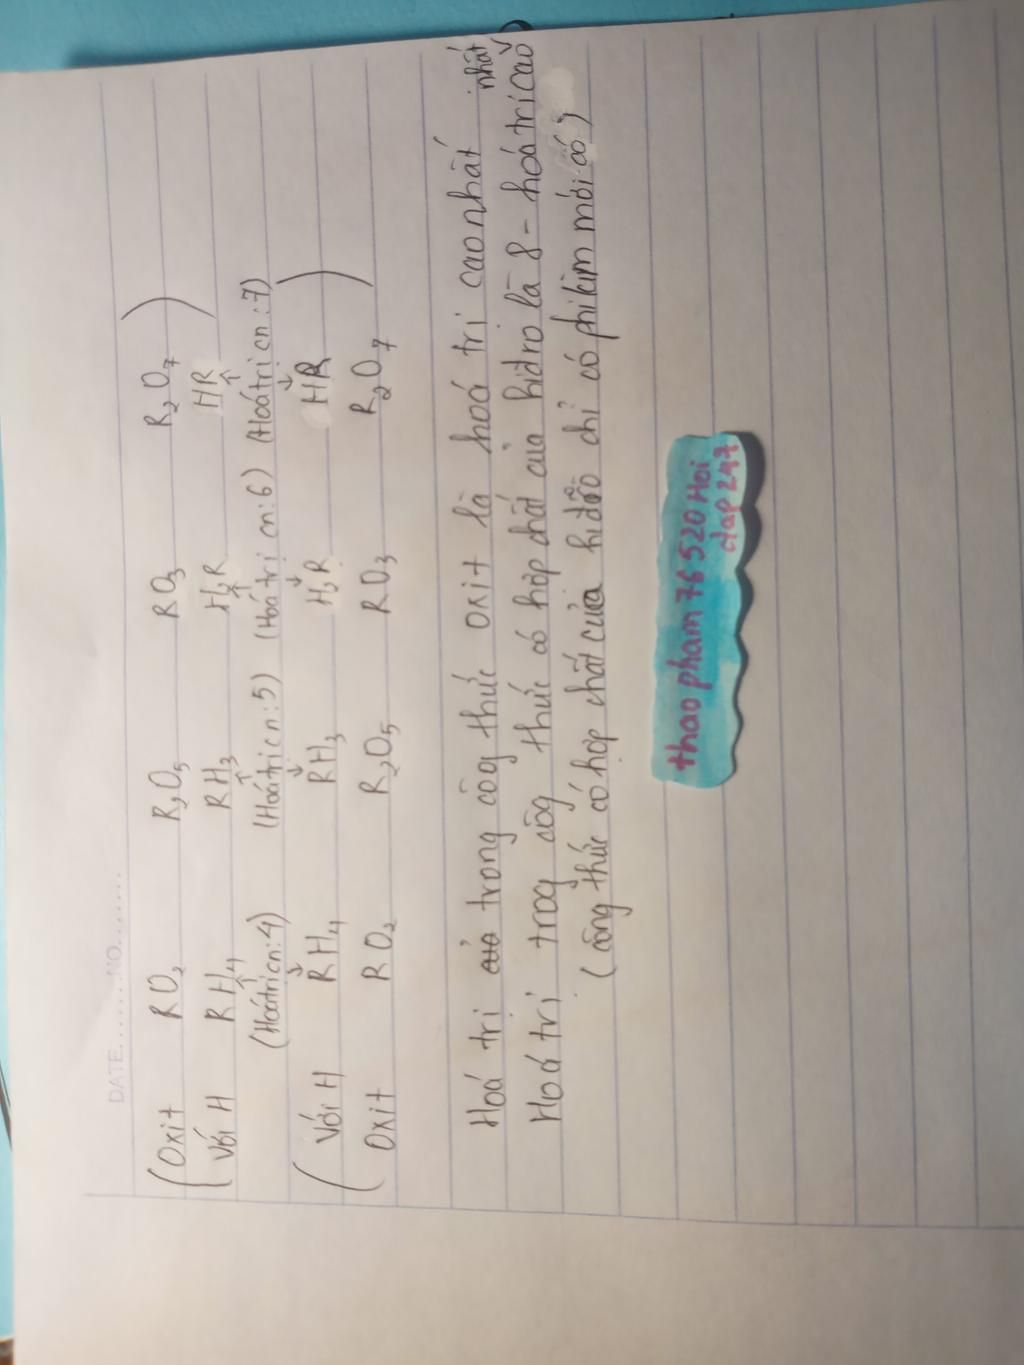 DATE........NO........
(Oxit RO₂ R₂O₅ RO₃ R₂O₇)
Với H RH₄ RH₃ H₂R HR
(Hoá trị cn:4) (Hoá trị cn:5) (Hoá trị cn:6) (Hoá trị cn:7)
(Với H RH₄ RH₃ H₂R HR)
Oxit RO₂ R₂O₅ RO₃ R₂O₇
Hoá trị trong công thức oxit là hoá trị cao nhất
Hoá trị trog côg thức có hợp chất của hiđro là 8 - hoá trị cao nhất
(công thức có hợp chất của hiđro chỉ có phi kim mới có)
thao pham 76 520 Hoi
dap 247